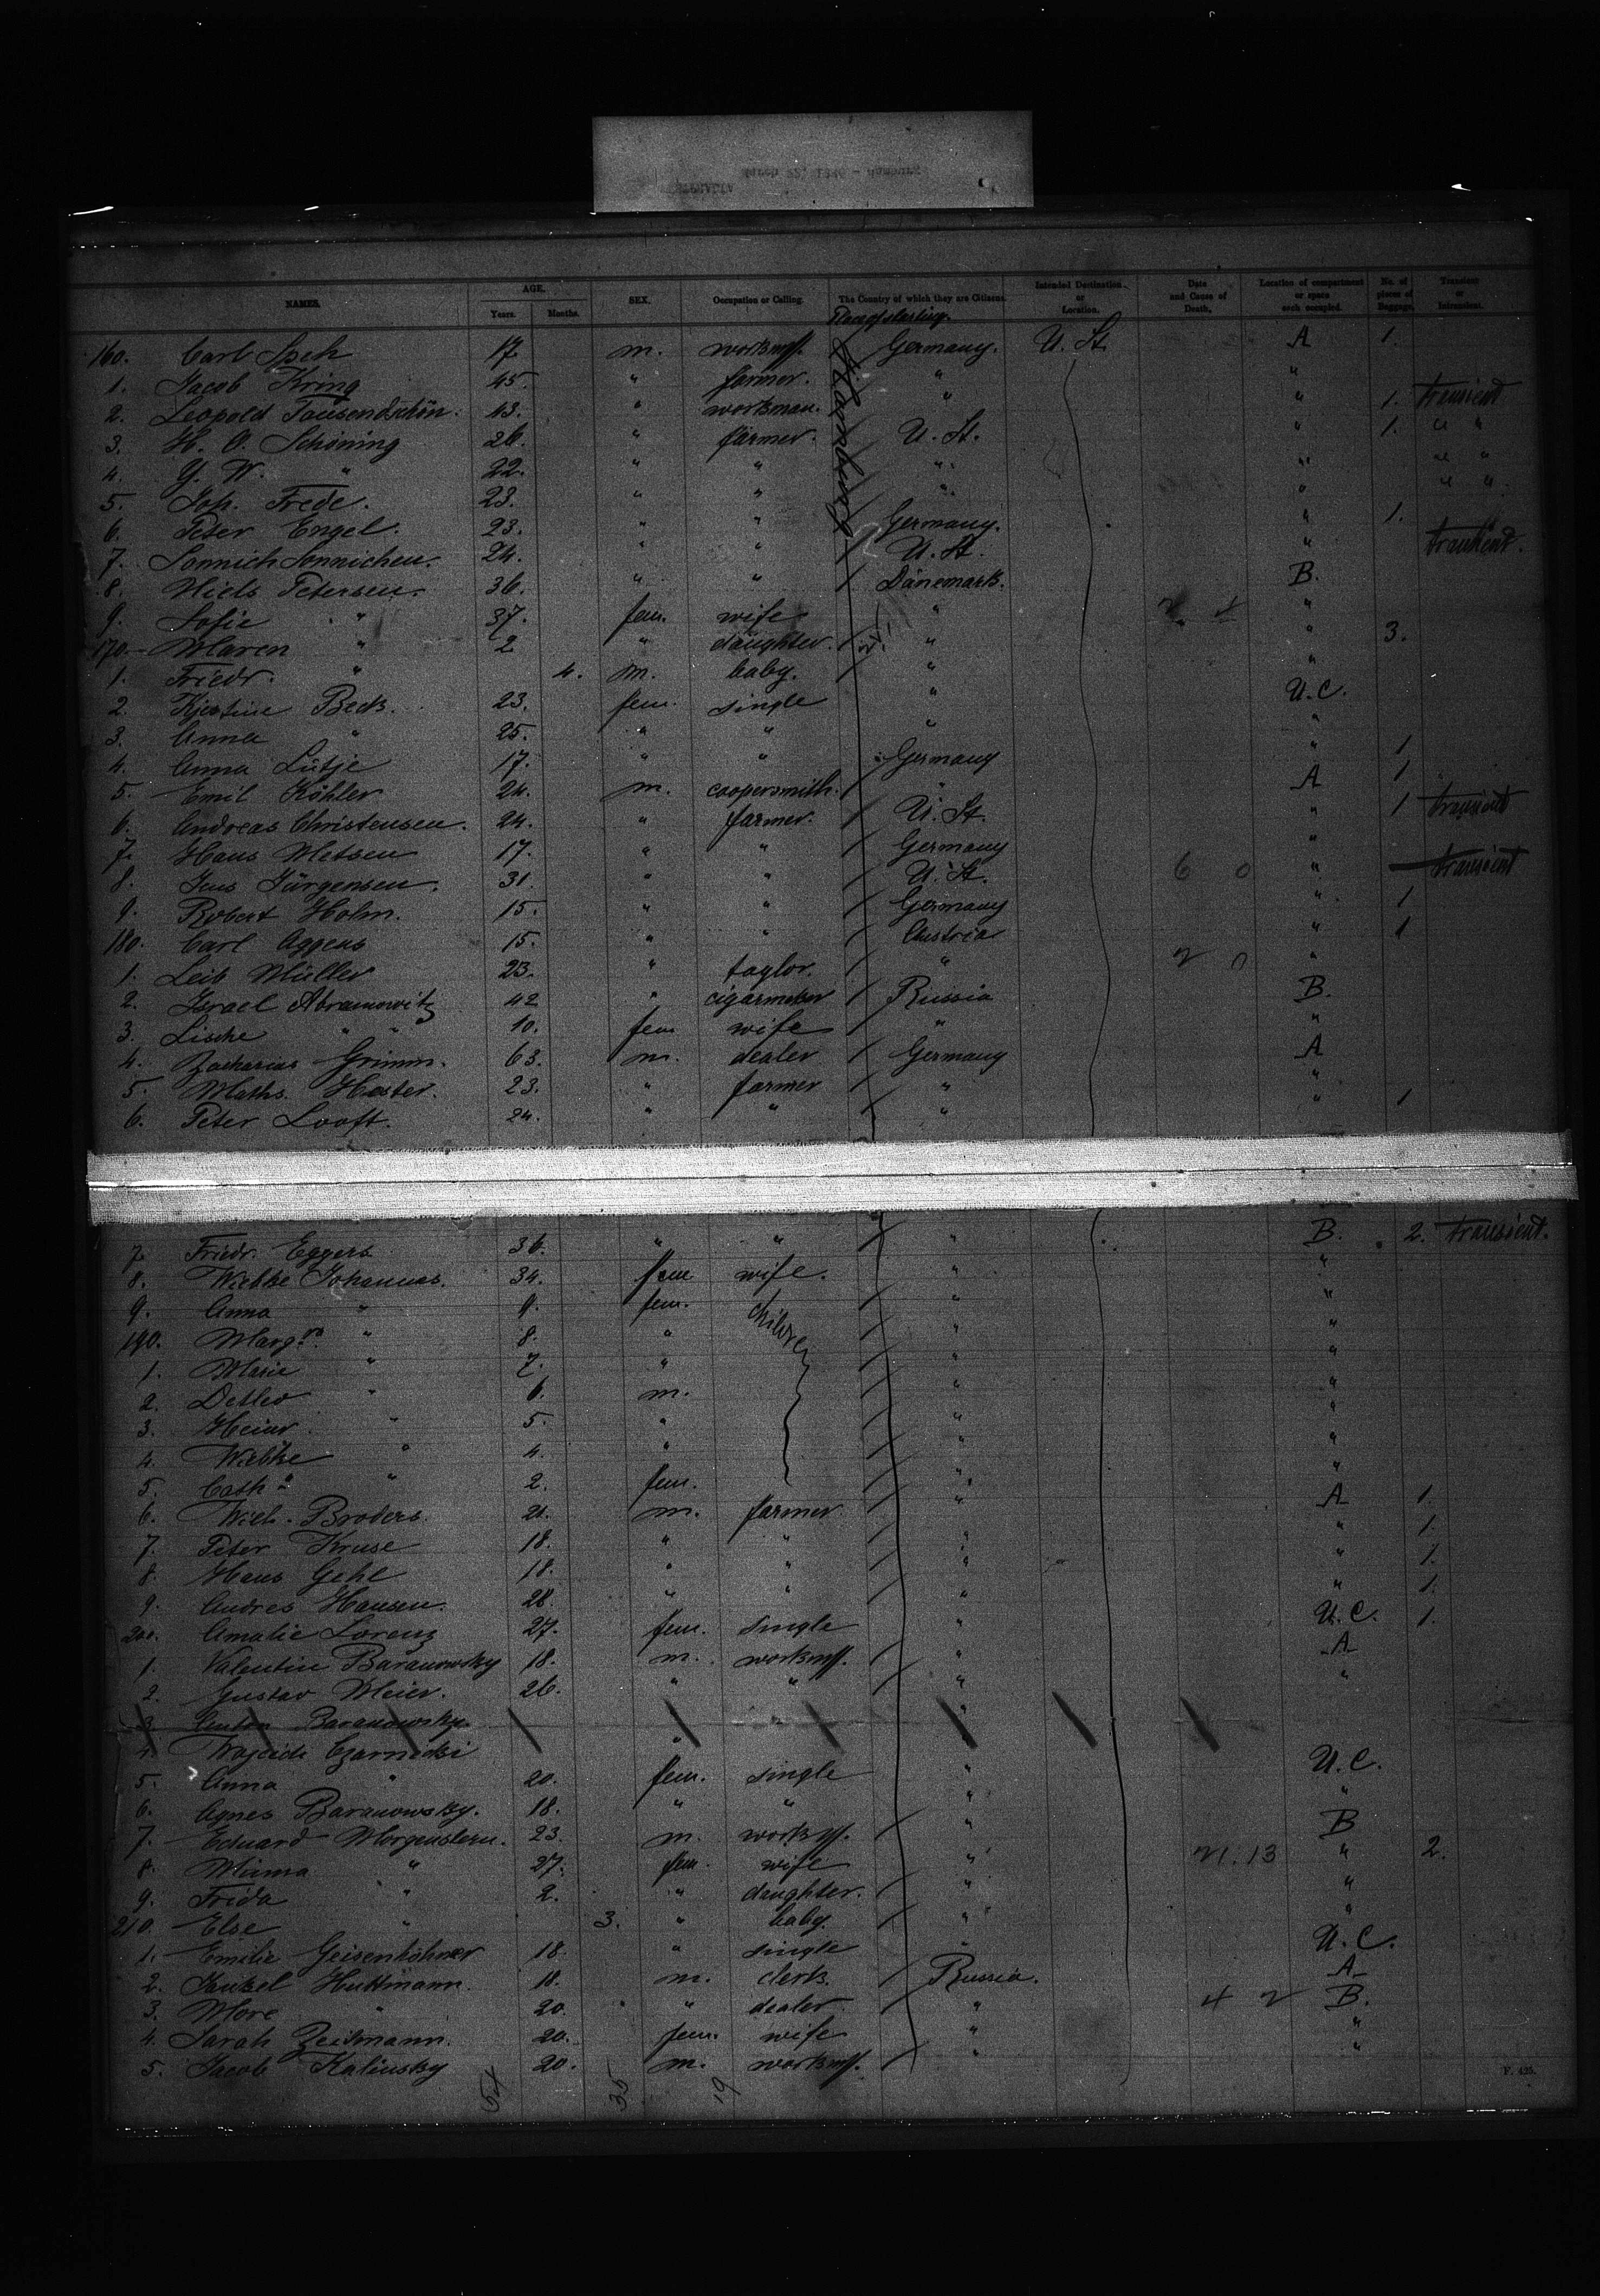 NAMES. AGE. Years. Months. SEX. Occupation or Calling. The Country of which they are Citizens. Intended Destination or Location. Date and Cause of Death. Location of compartment or space each occupied. No. of pieces of Baggage. Transient or Intransient.
Place of starting.
Hamburg
160. Carl 17 m. Germany. U. St. A 1.
1. Jacob Kring 45. " farmer. " "
2. Leopold Tausendschön. 43. " workman. " " 1. transient
3. H. O. Schöning 26. " farmer. U. St. " 1. " "
4. J. W. " 22. " " " " " "
5. Joh. Frede. 23. " " " " " "
6. Peter Engel. 23. " " Germany. " 1.
7. Sonnich Sonnichen. 24. " " U. St. " transient.
8. Niels Petersen. 36. " " Dänemark. B.
9. Sofie " 37. fem. wife " "
170. Maren " 2 " daughter. " " 3.
1. Friedr. " 4. m. baby. " "
2. Kjestine Beck. 23. fem. single " U.C.
3. Anna " 25. " " " "
4. Anna Lütje 17. " " Germany " 1
5. Emil Köhler 24. m. coopersmith. " A 1
6. Andreas Christensen. 24. " farmer. U. St. " 1 transient
7. Hans Metsen 17. " " Germany "
8. Jens Jürgensen. 31. " " U. St. 6 0 " transient
9. Robert Holm. 15. " " Germany " 1
180. Carl Aggens 15. " " Austria " 1
1. Leib Müller 23. " taylor. " 2 0 "
2. Israel Abramowitz 42 " cigarmaker Russia B.
3. Lische " " 10. fem wife " "
4. Zacharias Grimm. 63. m. dealer Germany A
5. Maths. Hester. 23. " farmer " "
6. Peter Looft. 24. " " " " 1
7. Friedr. Eggers 36. " " " B. 2. transient.
8. Wiebke Johannes. 34. fem wife. " "
9. Anna " 9. fem. children " "
190. Marg. " 8. " " "
1. Marie " 7. " " "
2. Detlev " 6. m. " "
3. Heinr. " 5. " " "
4. Wiebke " 4. " " "
5. Cath. " 2. fem. " "
6. Wilh. Broders. 21. m. farmer " A 1.
7. Peter Kruse 18. " " " " 1.
8. Hans Gehl 18. " " " " 1.
9. Andres Hansen. 28. " " " " 1.
200. Amalie Lorenz 27. fem. single " U.C. 1.
1. Valentin Baranowsky 18. m. " A
2. Gustav Meier. 26. " " " "
3. Anton Baranowsky "
4. Wojcich Czarnecki " "
5. Anna " 20. fem. single " U.C.
6. Agnes Baranowsky. 18. " " " "
7. Eduard Morgenstern. 23. m. " B
8. Minna " 27. fem. wife " 21. 13 " 2.
9. Frida " 2. " daughter. " "
210. Else " 3. " baby. " "
1. Emilie Geisenhöhner 18. " single " U.C.
2. Huttmann. 18. m. clerk. Russia. A
3. More " 20. " dealer " 4 2 B.
4. Sarah Zeitmann. 20. fem. wife " "
5. Jacob Kalinsky 20. m. " "
54 35 19
F. 425.